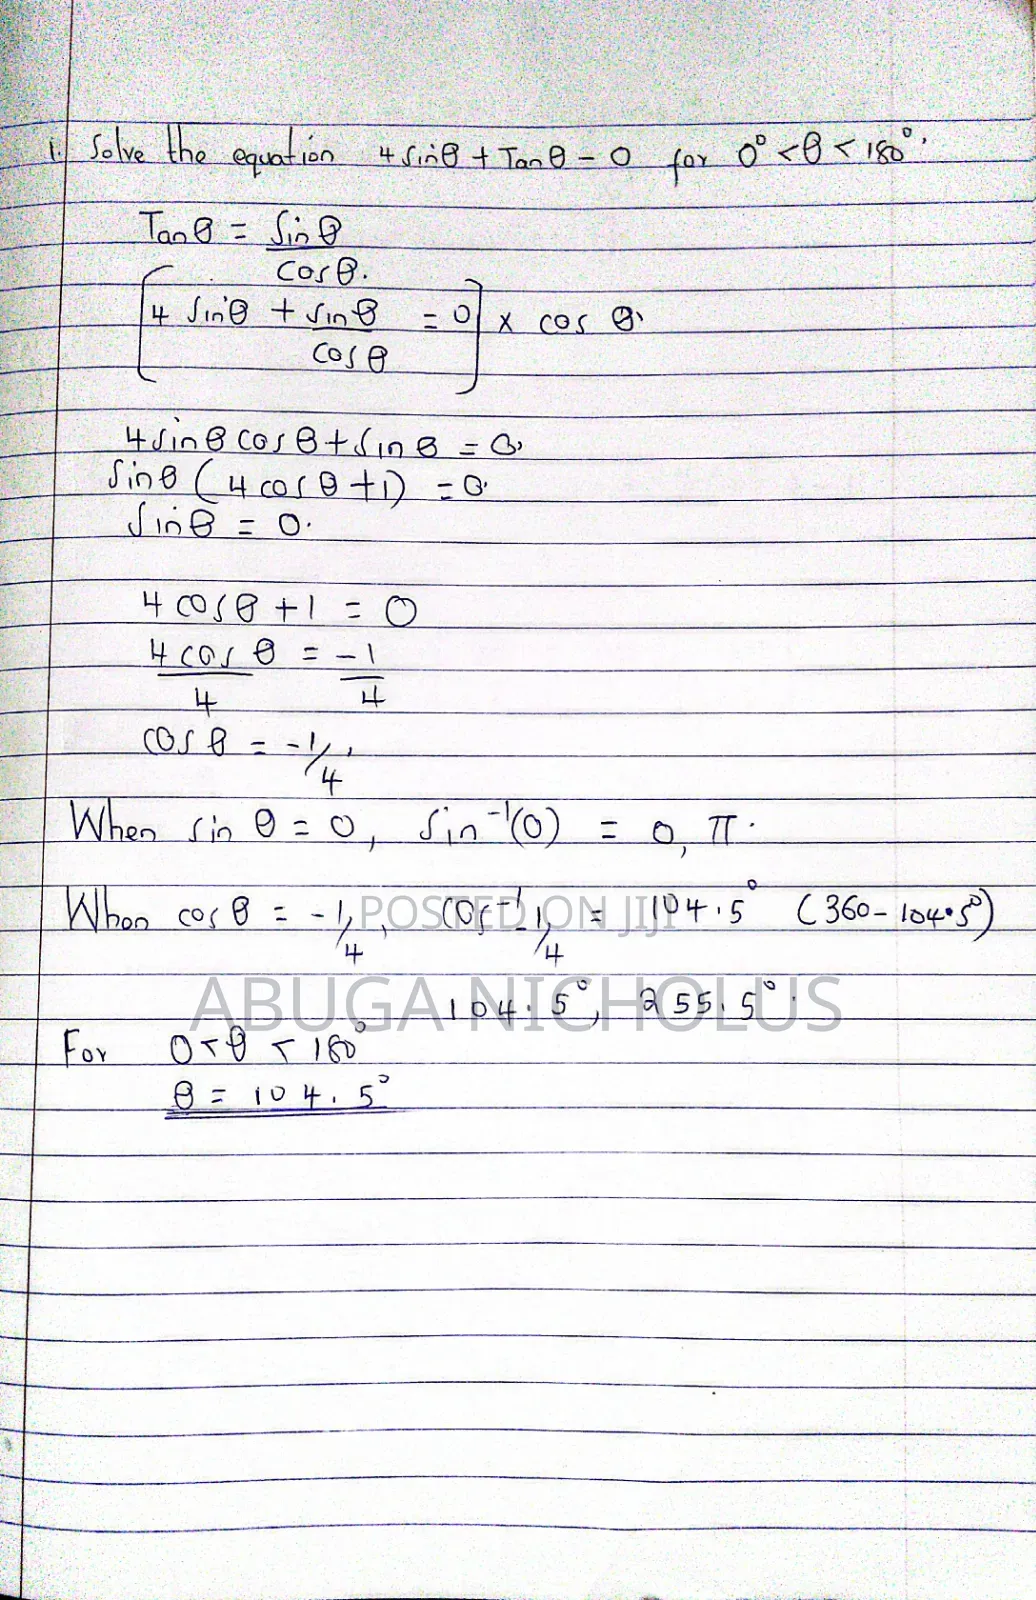 1. Solve the equation 4 sinθ + Tanθ - 0 for 0° < θ < 180°.
Tanθ = Sinθ
Cosθ.
[4 Sinθ + Sinθ = 0] x cos θ.
Cosθ
4sinθ cosθ + Sinθ = 0.
Sinθ (4cosθ + 1) = 0.
Sinθ = 0.
4 cosθ + 1 = 0
4 cos θ = -1
4 4
Cosθ = -1/4,
When sin θ = 0, Sin⁻¹(0) = 0, π.
When cosθ = -1/4, Cos⁻¹ 1/4 = 104.5° (360 - 104.5°)
POSTED ON JIJI
104.5°, 255.5°.
ABUGA NICHOLUS
For 0 < θ < 180°
θ = 104.5°